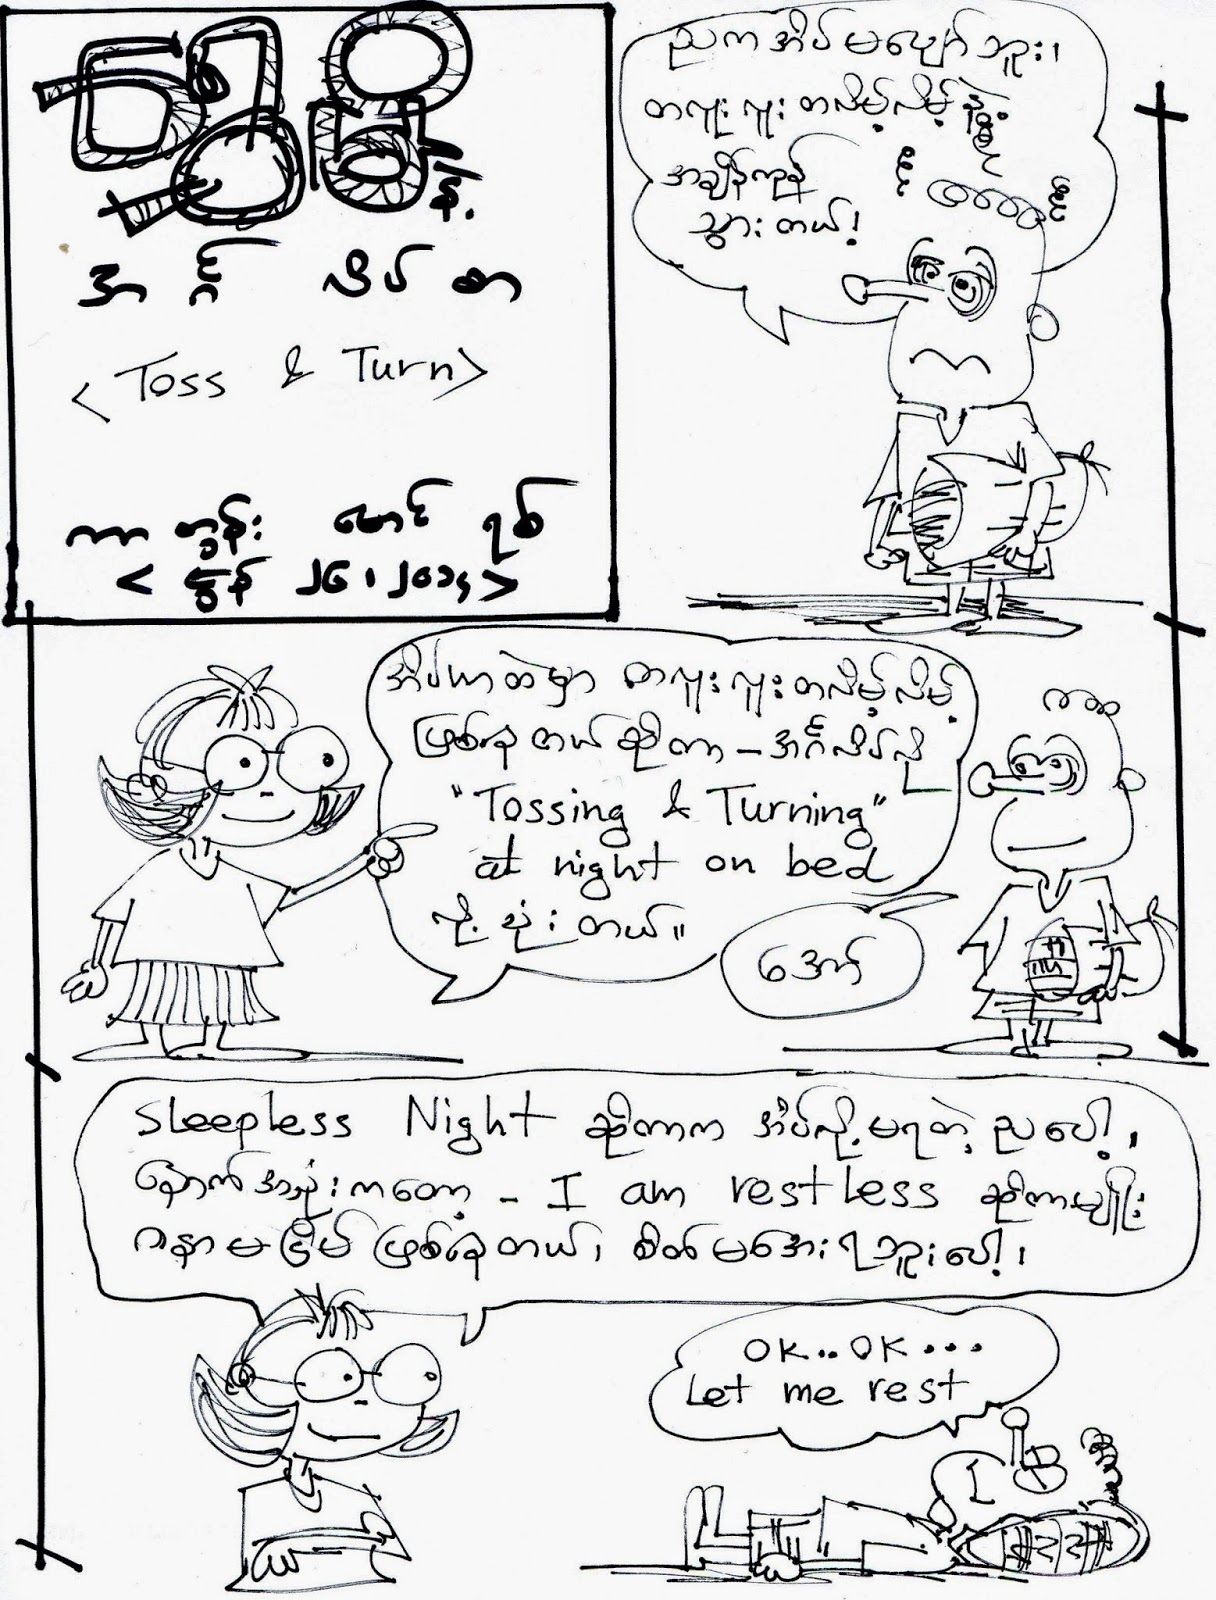 အင်္ဂလိပ်စာ
<Toss & Turn>
ကာတွန်း မောင်ရစ်
<ဇွန် ၂၆၊ ၂၀၁၄>
ညက အိပ်မပျော်ဘူး၊
တလူးလူး တလိမ့်လိမ့် နဲ့
အချိန်ကုန်
သွားတယ်!
အိပ်ယာထဲမှာ တလူးလူးတလိမ့်လိမ့်
ဖြစ်နေတယ်ဆိုတာ – အင်္ဂလိပ်လို
"Tossing & Turning"
at night on bed
လို့ သုံးတယ်။
အော်
Sleepless Night ဆိုတာက အိပ်လို့မရတဲ့ ညပေါ့၊
နောက်အသုံးကတော့ – I am restless ဆိုတာမျိုး
ဂနာမငြိမ်ဖြစ်နေတယ်၊ စိတ်မအေးရဘူးပေါ့၊
OK..OK...
Let me rest